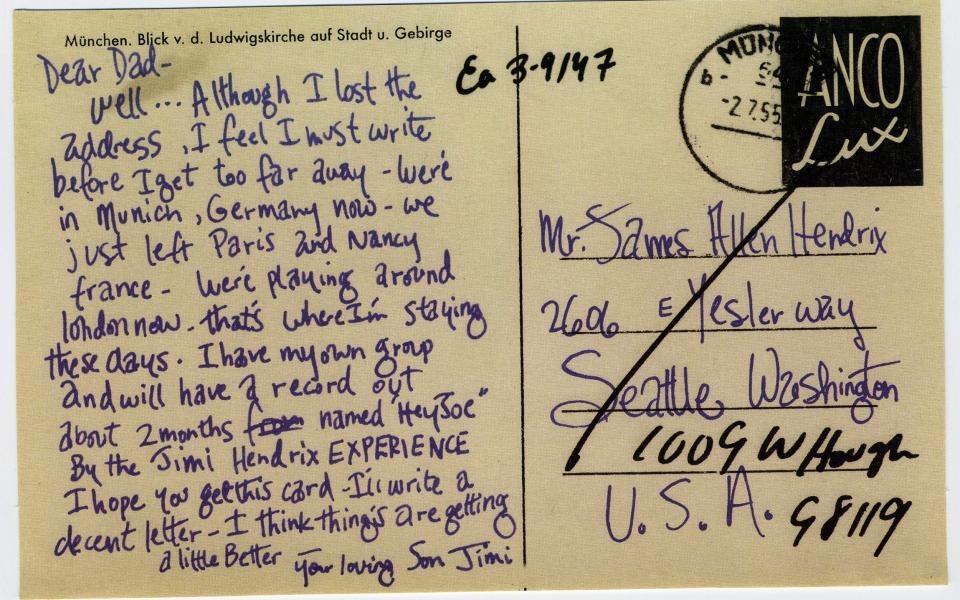 München. Blick v. d. Ludwigskirche auf Stadt u. Gebirge
Dear Dad-
Well... Although I lost the
address, I feel I must write
before I get too far away - We're
in Munich, Germany now - we
just left Paris and Nancy
france - We're playing around
london now. that's where I'm staying
these days. I have my own group
and will have a record out
about 2 months named "Hey Joe"
By the Jimi Hendrix EXPERIENCE
I hope you get this card - I'll write a
decent letter - I think things are getting
a little Better your loving Son Jimi
3-9/47
MÜNC
b
-2.7.55
ANCO
Lux
Mr. James Allen Hendrix
2606 E Yesler way
Seattle Washington
1009 W Hough
U.S.A. 98119